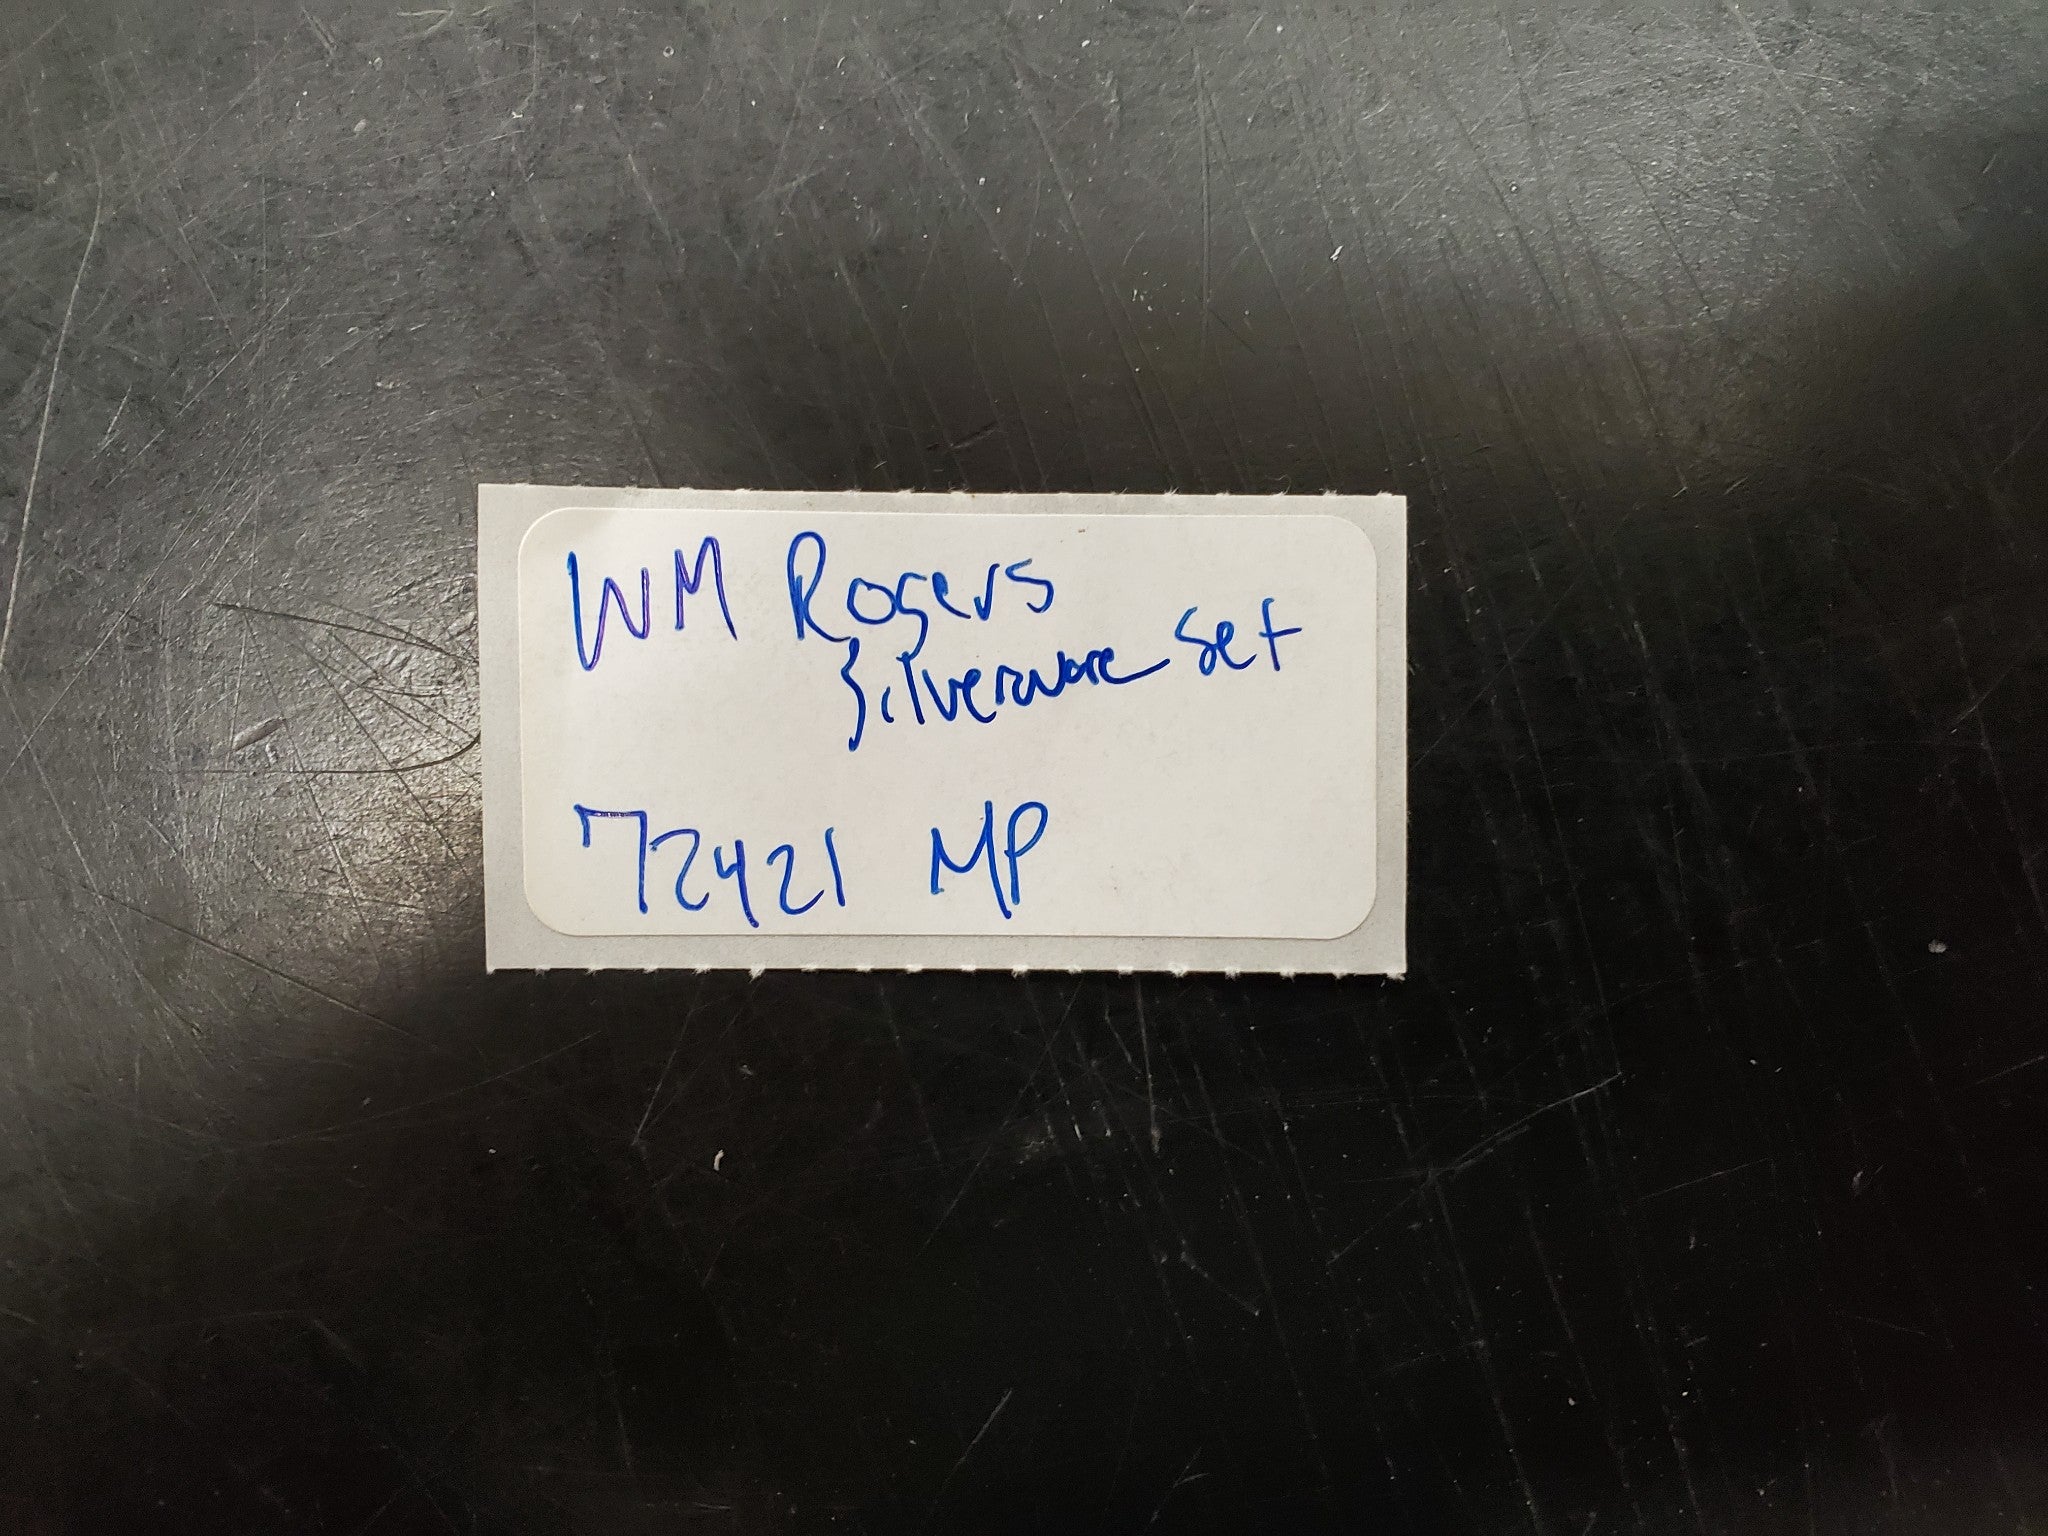 WM Rogers
Silverware Set
72421 MP